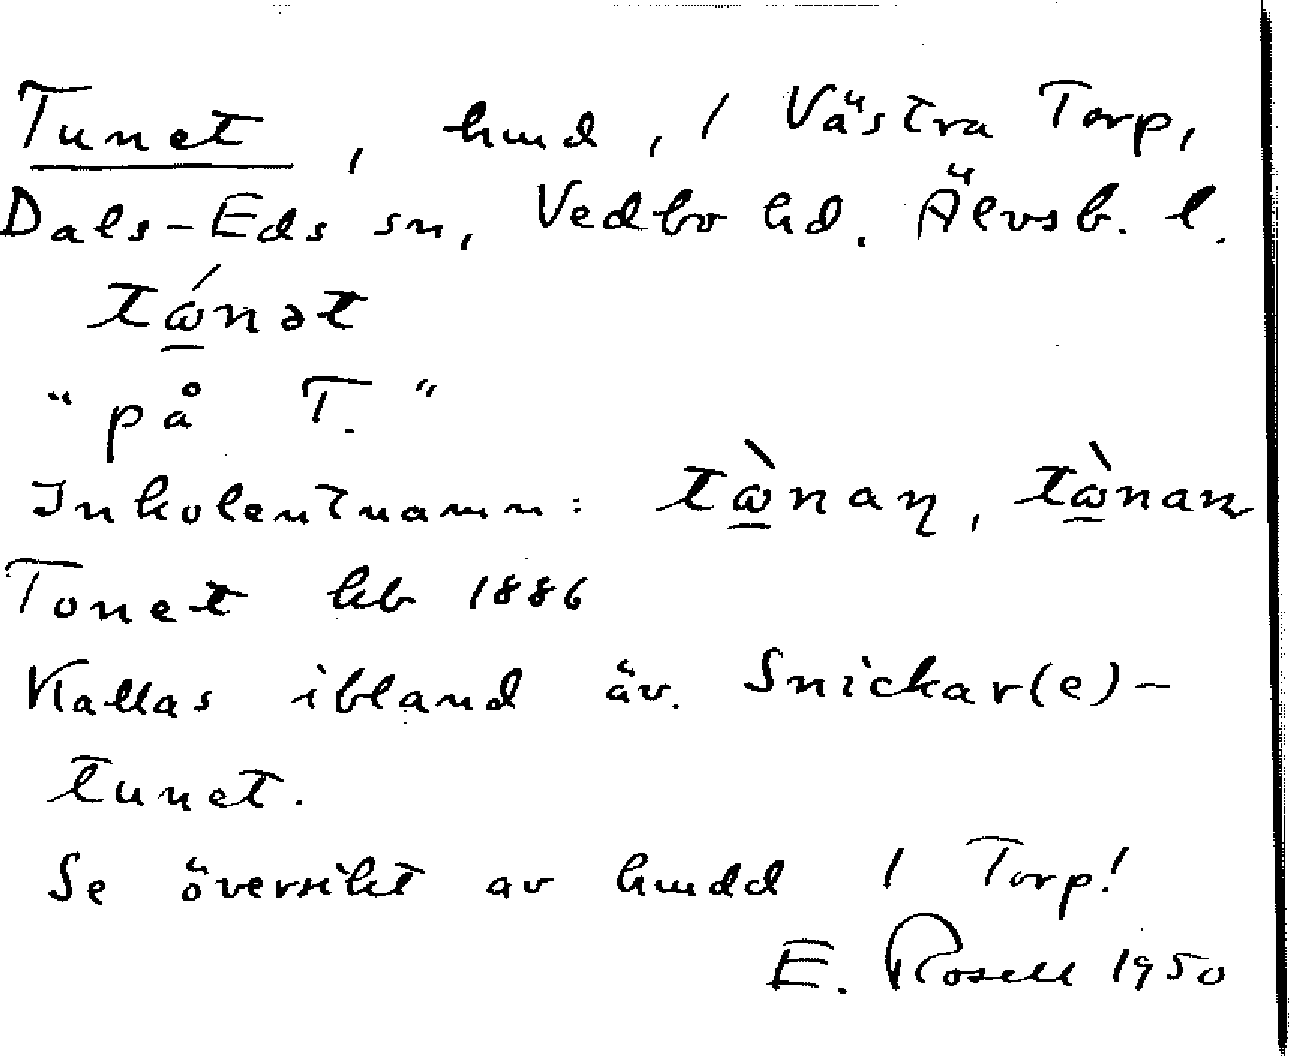 Tunet, hmd, / Västra Torp,
Dals-Eds sn, Vedbo hd. Älvsb. l.
tώ̲nət
"på T."
Inkolentnamn: tὼ̲naɳ, tὼ̲nan
Tonet kb 1886
Kallas ibland äv. Snickar(e)-
tunet.
Se översikt av hmdd / Torp!
E. Rosell 1950